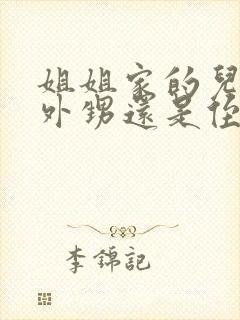 姐姐家的兒
外甥還是侄
李錦記